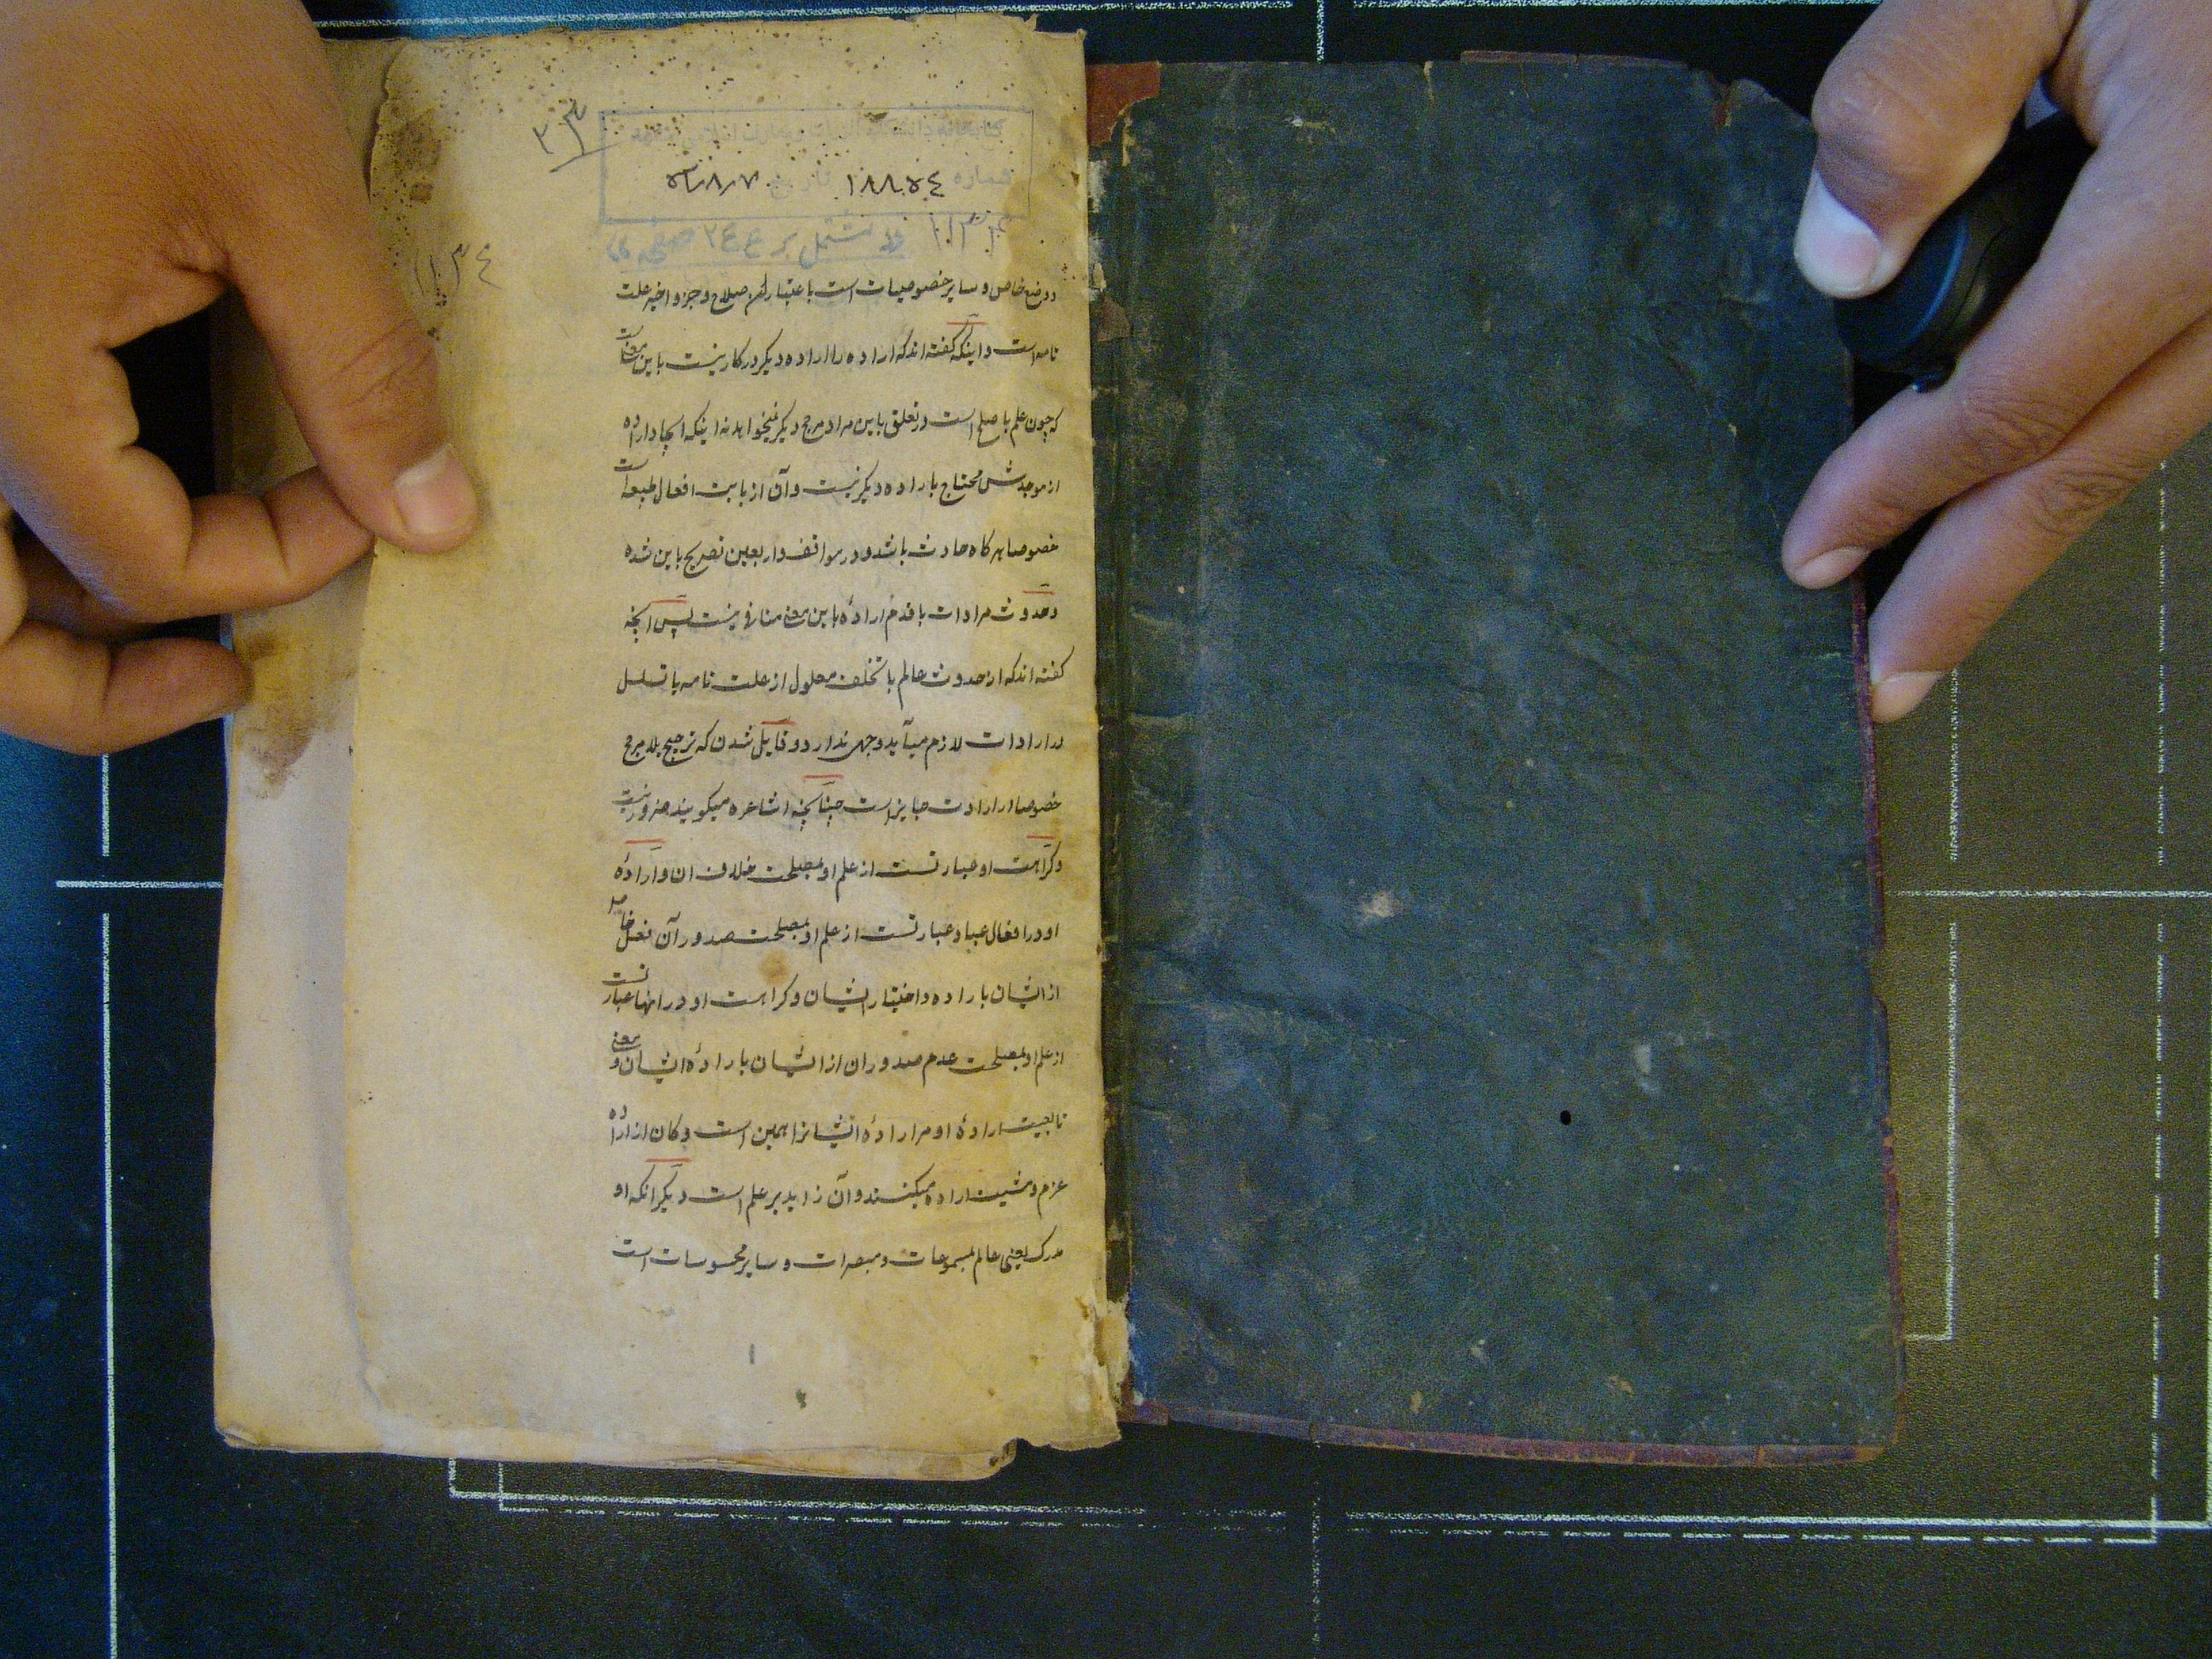 ۲۳
کتابخانه دانشکده الهیات و معارف اسلامی مشهد
شماره ۱۸۸۵۴ تاریخ
مشتمل بر ۲۴۴ صفحه
۱۱۳۴
و وضع خاص و سایر خصوصیات است باعتبار صلاح و جزو اخیر علت
تامه است و اینکه گفته اند که اراده را اراده دیگر در کار نیست باین معنی است
که چون علم باصلح است در تعلق باین مراد مرجح دیگر نمیخواهد نه اینکه ایجاد اراده
از موجدش محتاج باراده دیگر نیست و آن از بابت افعال طبیعه است
خصوصا هرگاه حادث باشد و در مواقف و اربعین تصریح باین شده
و حدوث مرادات با قدم ارادهٔ باین معنی منافی نیست پس آنچه
گفته اند که از حدوث عالم یا تخلف معلول از علت تامه یا تسلسل
در ارادات لازم میآید وجهی ندارد و قایل شدن که ترجیح بلا مرجح
خصوصا در ارادت جایز است چنانچه اشاعره میگویند ضرور نیست
و کراهت او عبارتست از علم او بمصلحت خلاف ان و ارادهٔ
او در افعال عباد عبارتست از علم او بمصلحت صدور آن فعل خاص
از ایشان باراده و اختیار ایشان و کراهت او در انها عبارتست
از علم او بمصلحت عدم صدور ان از ایشان بارادهٔ ایشان و معنی
تابعیت ارادهٔ او مر ارادهٔ ایشانرا همین است و گاه از اراده
عزم و مشیت اراده میکنند و آن زاید بر علم است دیگر آنکه او
مدرک یعنی عالم بمسموعات و مبصرات و سایر محسوسات است